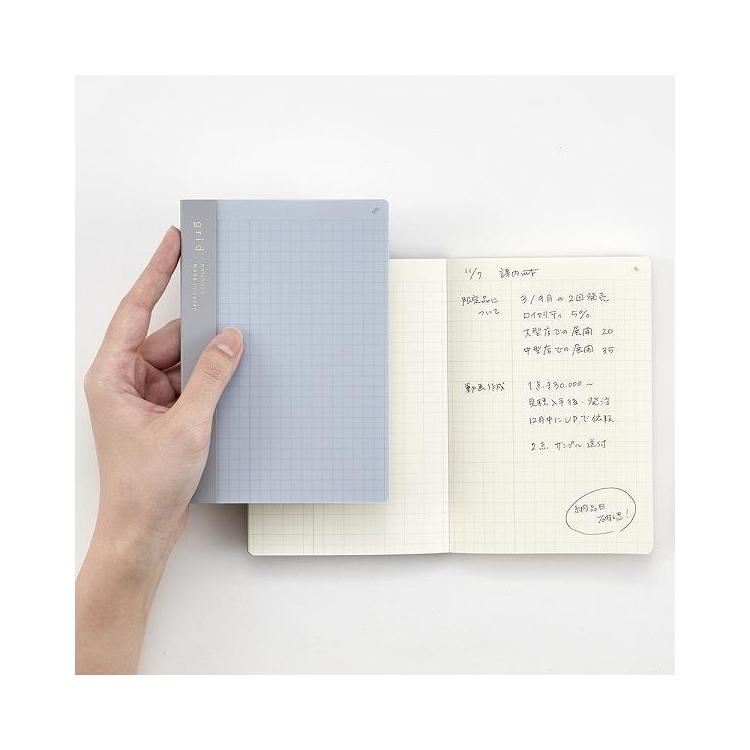 grid
made in japan
11/7 課内mt
限定品に
ついて
3/9月の2回発売
ロイヤリティ 5%
大型店での展開 20
中型店での展開 35
動画作成
1点¥30.000〜
見積入手後・発注
12月中にUPで依頼
2点 サンプル送付
納品日
確認!